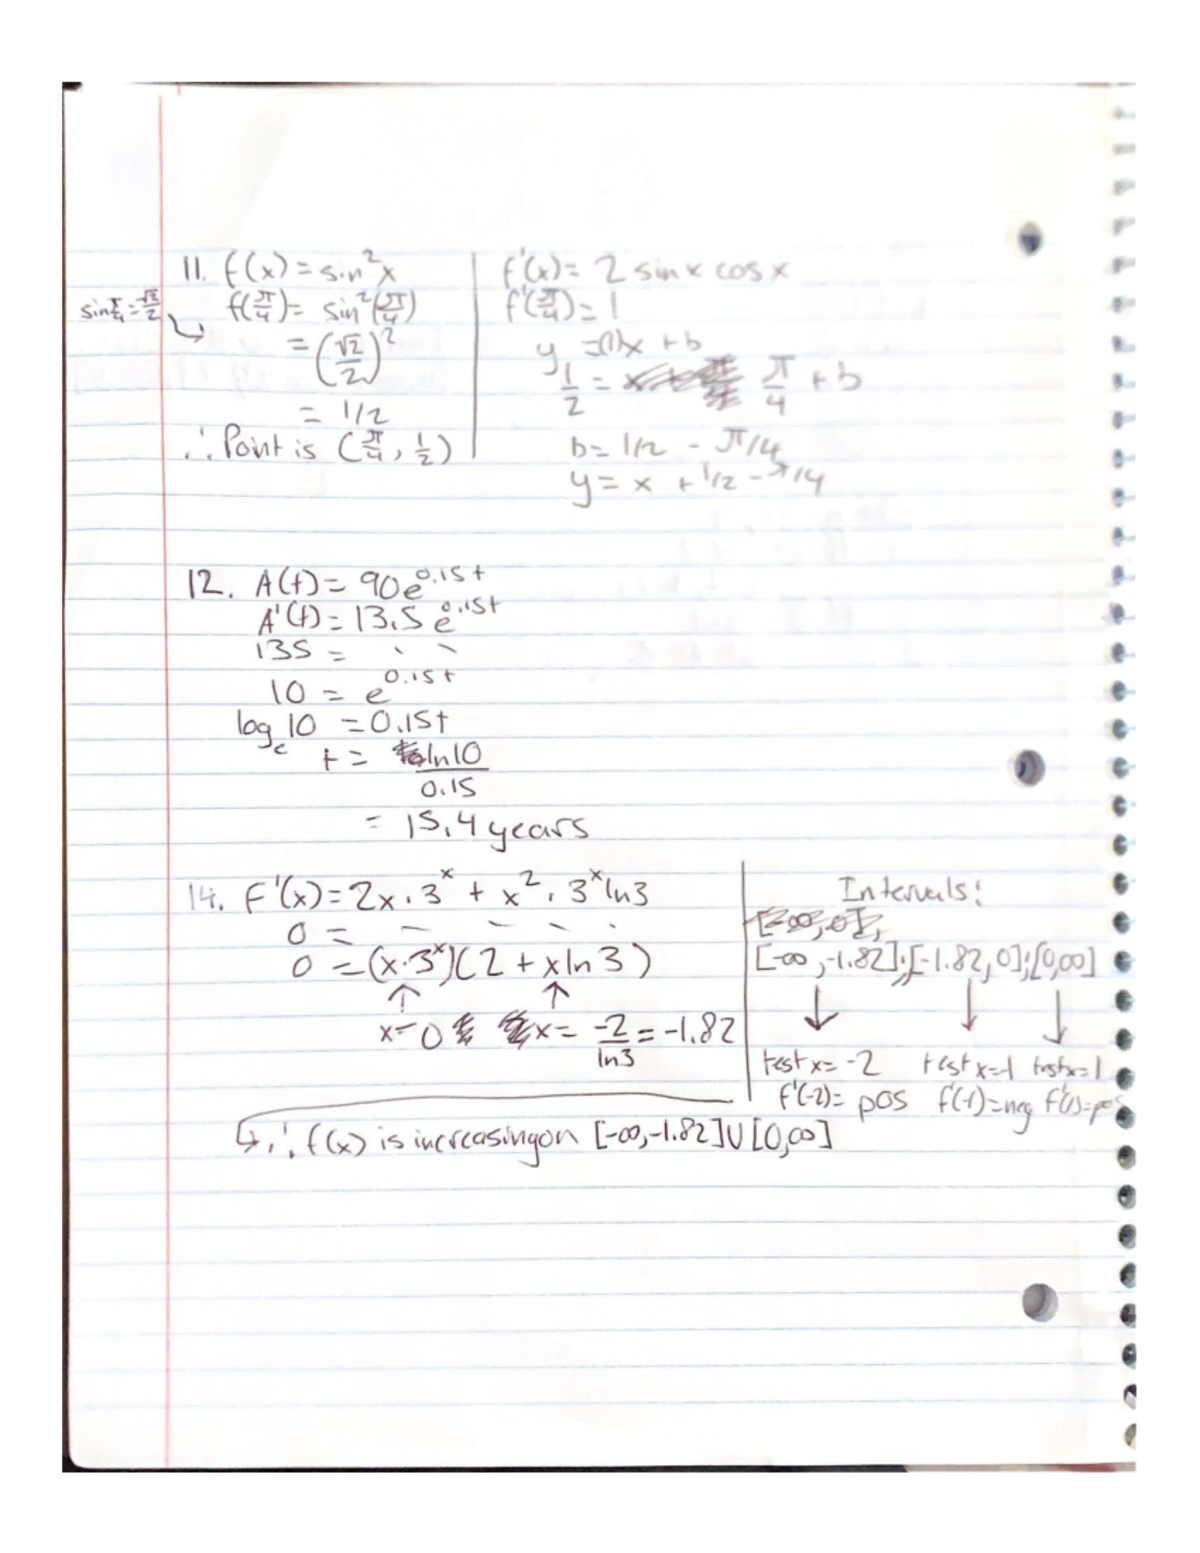 11. f(x) = sin²x
sin π/4 = √2/2
f(π/4) = sin²(π/4)
= (√2/2)²
= 1/2
∴ Point is (π/4, 1/2)
f'(x) = 2 sinx cosx
f'(π/4) = 1
y = (1)x + b
1/2 = π/4 + b
b = 1/2 - π/4
y = x + 1/2 - π/4
12. A(t) = 90e^0.15t
A'(t) = 13.5 e^0.15t
135 = 〃
10 = e^0.15t
log_e 10 = 0.15t
t = ln10/0.15
= 15.4 years
14. F'(x) = 2x · 3^x + x² · 3^x ln3
0 = 〃
0 = (x·3^x)(2 + x ln 3)
↑ ↑
x=0 x = -2/ln3 = -1.82
Intervals:
[-∞, 0],
[-∞, -1.82]; [-1.82, 0]; [0, ∞]
↓ ↓ ↓
test x = -2 test x=-1 test x=1
f'(-2) = pos f'(-1) = neg f'(1) = pos
↳ ∴ f(x) is increasing on [-∞, -1.82] U [0, ∞]